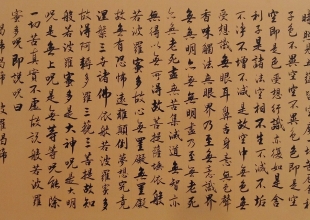 時照見五蘊皆空
子色不異空空不異色色即是空
空即是色受想行識亦復如是舍
利子是諸法空相不生不滅不垢
不淨不增不減是故空中無色無
受想行識無眼耳鼻舌身意無色聲
香味觸法無眼界乃至無意識界
無無明亦無無明盡乃至無老死
亦無老死盡無苦集滅道無智亦
無得以無所得故菩提薩埵依般
若波羅蜜多故心無罣礙無罣礙
故無有恐怖遠離顛倒夢想究竟
涅槃三世諸佛依般若波羅蜜多
故得阿耨多羅三藐三菩提故知
般若波羅蜜多是大神咒是大明
咒是無上咒是無等等咒能除
一切苦真實不虛故說般若波羅
蜜多咒即說咒曰
揭諦揭諦 波羅揭諦